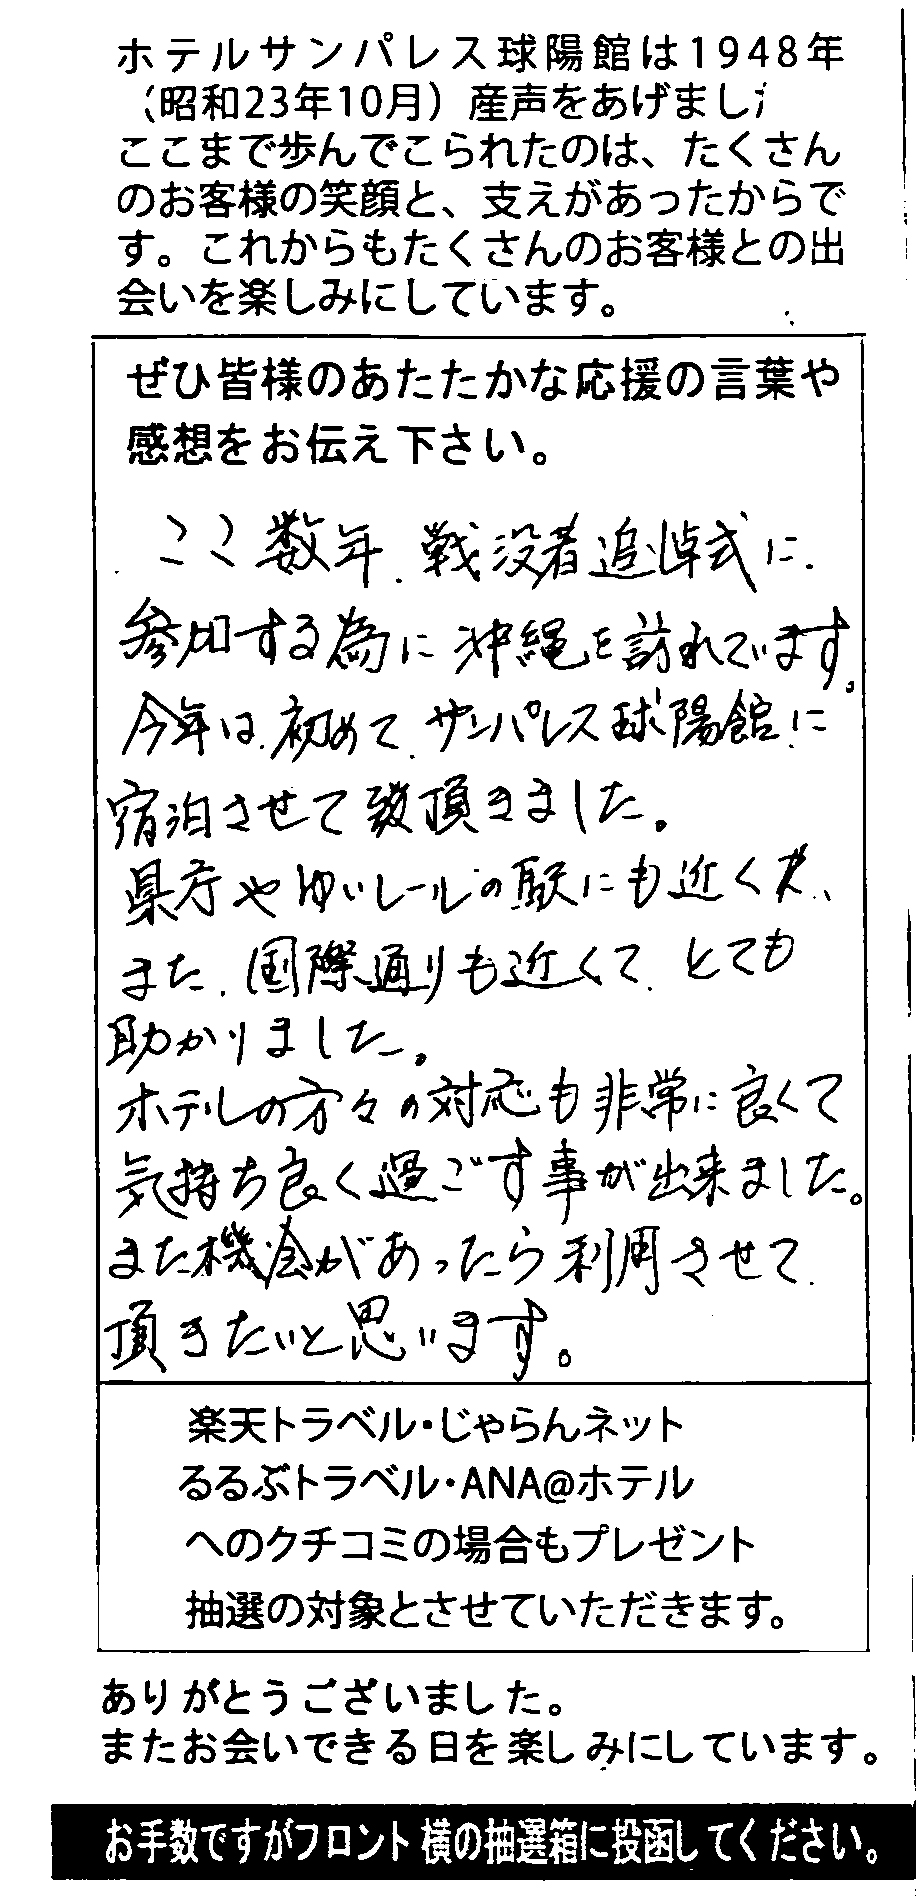 ホテルサンパレス球陽館は1948年
（昭和23年10月）産声をあげまし
ここまで歩んでこられたのは、たくさん
のお客様の笑顔と、支えがあったからで
す。これからもたくさんのお客様との出
会いを楽しみにしています。
ぜひ皆様のあたたかな応援の言葉や
感想をお伝え下さい。
ここ数年、戦没者追悼式に
参加する為に沖縄を訪れています。
今年は、初めて、サンパレス球陽館に
宿泊させて頂きました。
県庁やゆいレールの駅にも近く、
また、国際通りも近くて、とても
助かりました。
ホテルの方々の対応も非常に良くて
気持ち良く過ごす事が出来ました。
また機会があったら利用させて
頂きたいと思います。
楽天トラベル・じゃらんネット
るるぶトラベル・ANA@ホテル
へのクチコミの場合もプレゼント
抽選の対象とさせていただきます。
ありがとうございました。
またお会いできる日を楽しみにしています。
お手数ですがフロント横の抽選箱に投函してください。